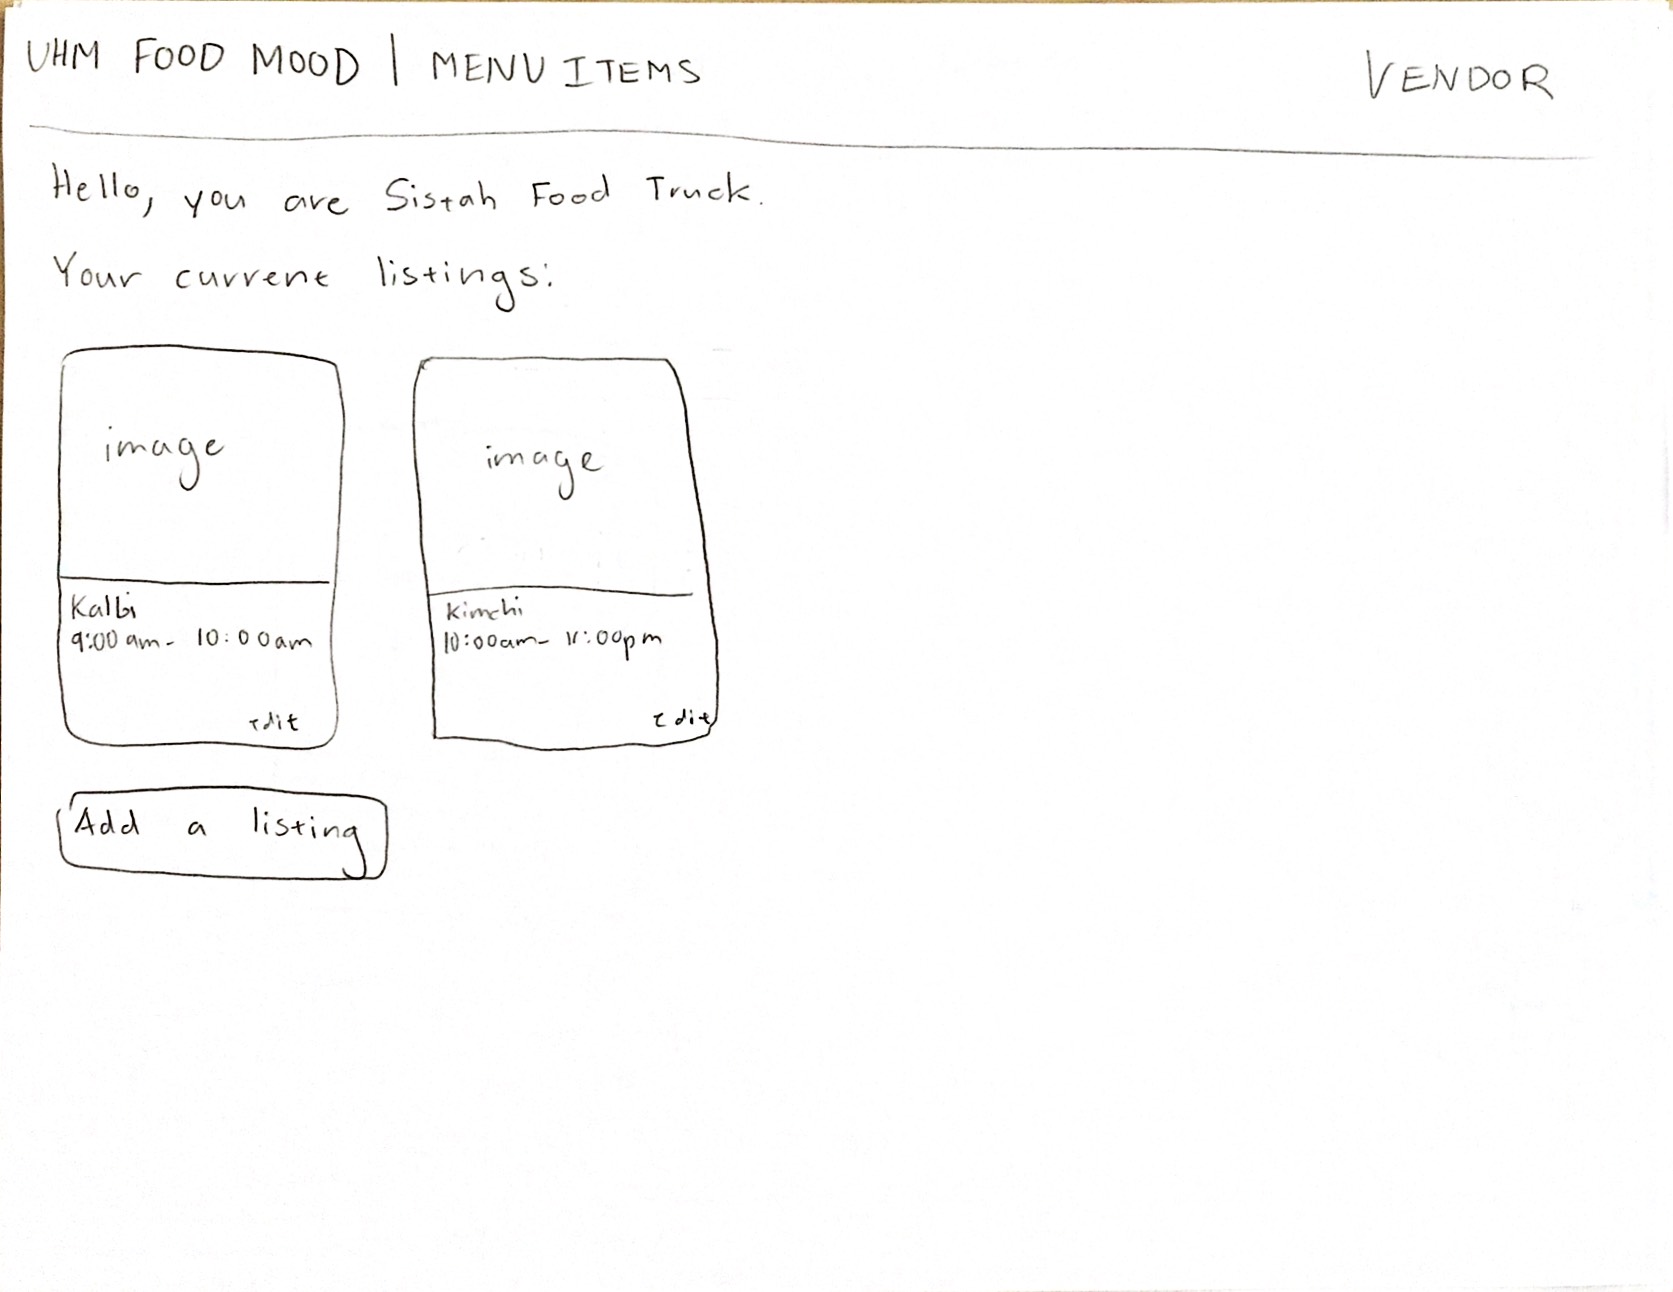 UHM FOOD MOOD | MENU ITEMS
VENDOR
Hello, you are Sistah Food Truck.
Your current listings:
image
image
Kalbi
9:00 am - 10:00am
edit
Kimchi
10:00am - 11:00pm
edit
Add a listing